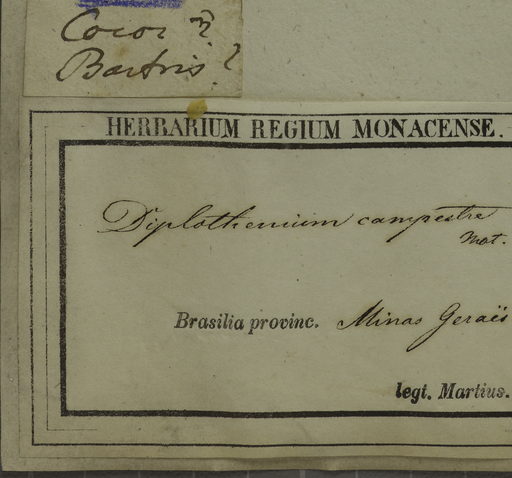 Cocos ??
Bactris?
HERBARIUM REGIUM MONACENSE.
Diplothemium campestre
Mat.
Brasilia provinc. Minas Geraës
legt. Martius.